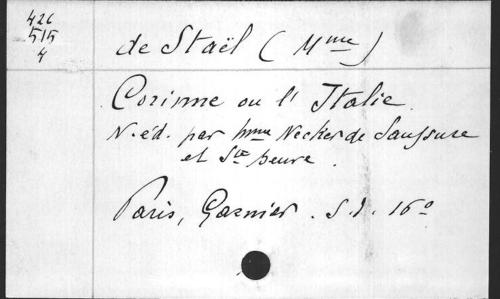 426
515
4
de Staël (Mme)
Corinne ou l'Italie.
N. éd. par Mme Necker de Saussure
et Ste beuve.
Paris, Garnier. S. d. 16º